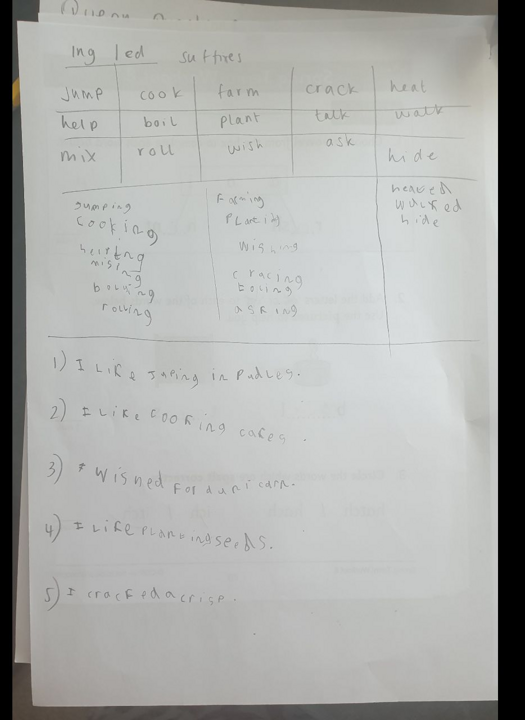 ing / ed suffixes
jump cook farm crack heat
help boil plant talk walk
mix roll wish ask hide
jumping Farming heated
cooking Planting walked
helping wishing hide
mising cracing
boiling
rolling asking
1) I Like juping in Pudles.
2) I Like cooking cakes.
3) I wished For a uni carn.
4) I Like planting seeds.
5) I cracked a crise.